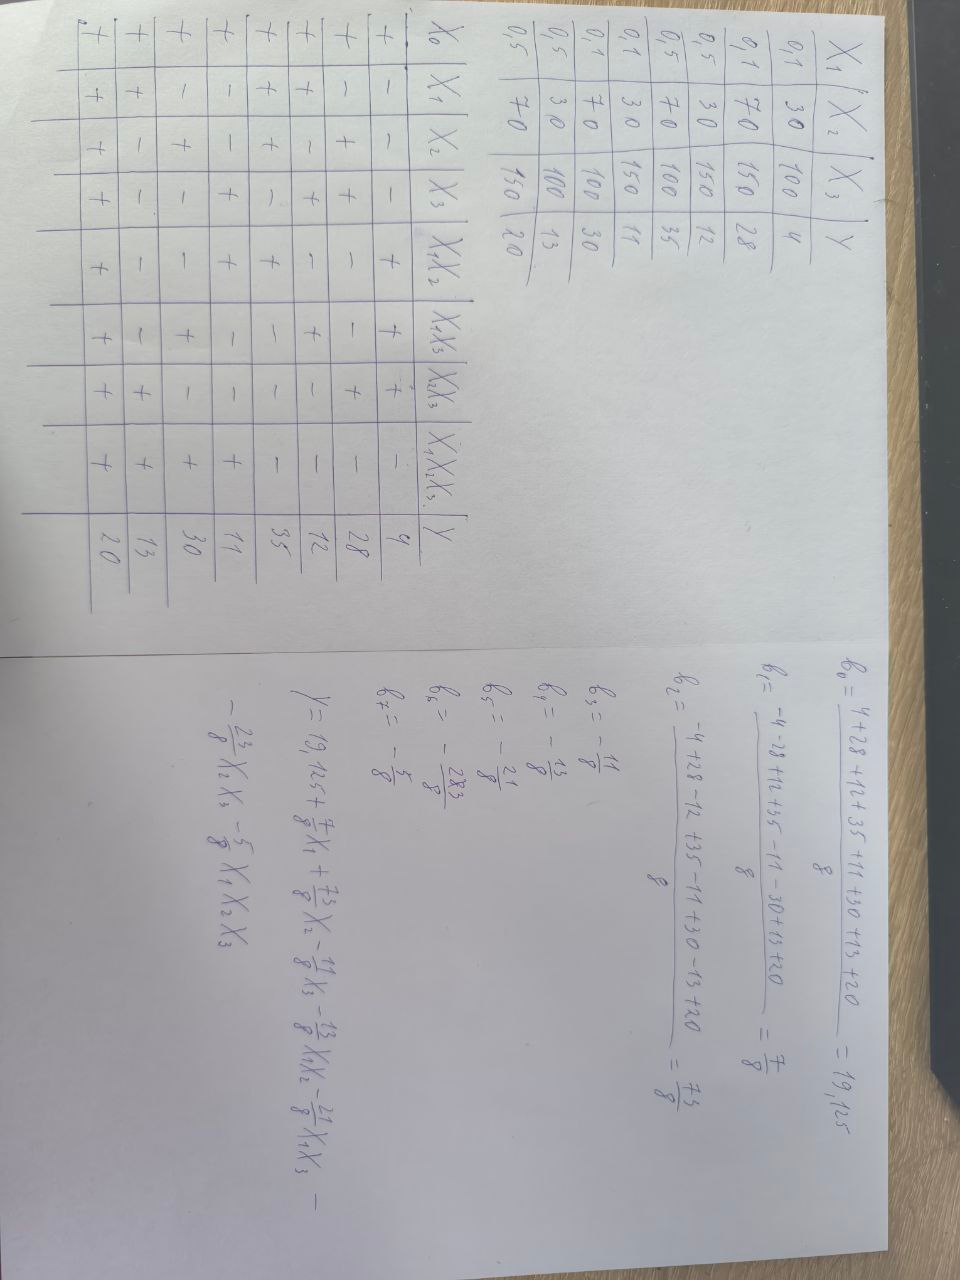 X₁ X₂ X₃ Y
0,1 30 100 4
0,1 70 150 28
0,5 30 150 12
0,5 70 100 35
0,1 30 150 11
0,1 70 100 30
0,5 30 100 13
0,5 70 150 20
X₀ X₁ X₂ X₃ X₁X₂ X₁X₃ X₂X₃ X₁X₂X₃ Y
+ - - - + + + - 4
+ - + + - - + - 28
+ + - + - + - - 12
+ + + - + - - - 35
+ - - + + - - + 11
+ - + - - + - + 30
+ + - - - - + + 13
+ + + + + + + + 20
b₀ = 4+28+12+35+11+30+13+20 / 8 = 19,125
b₁ = -4-28+12+35-11-30+13+20 / 8 = 7/8
b₂ = -4+28-12+35-11+30-13+20 / 8 = 73/8
b₃ = -11/8
b₄ = -13/8
b₅ = -21/8
b₆ = -23/8
b₇ = -5/8
y = 19,125 + 7/8 X₁ + 73/8 X₂ - 11/8 X₃ - 13/8 X₁X₂ - 21/8 X₁X₃ -
- 23/8 X₂X₃ - 5/8 X₁X₂X₃